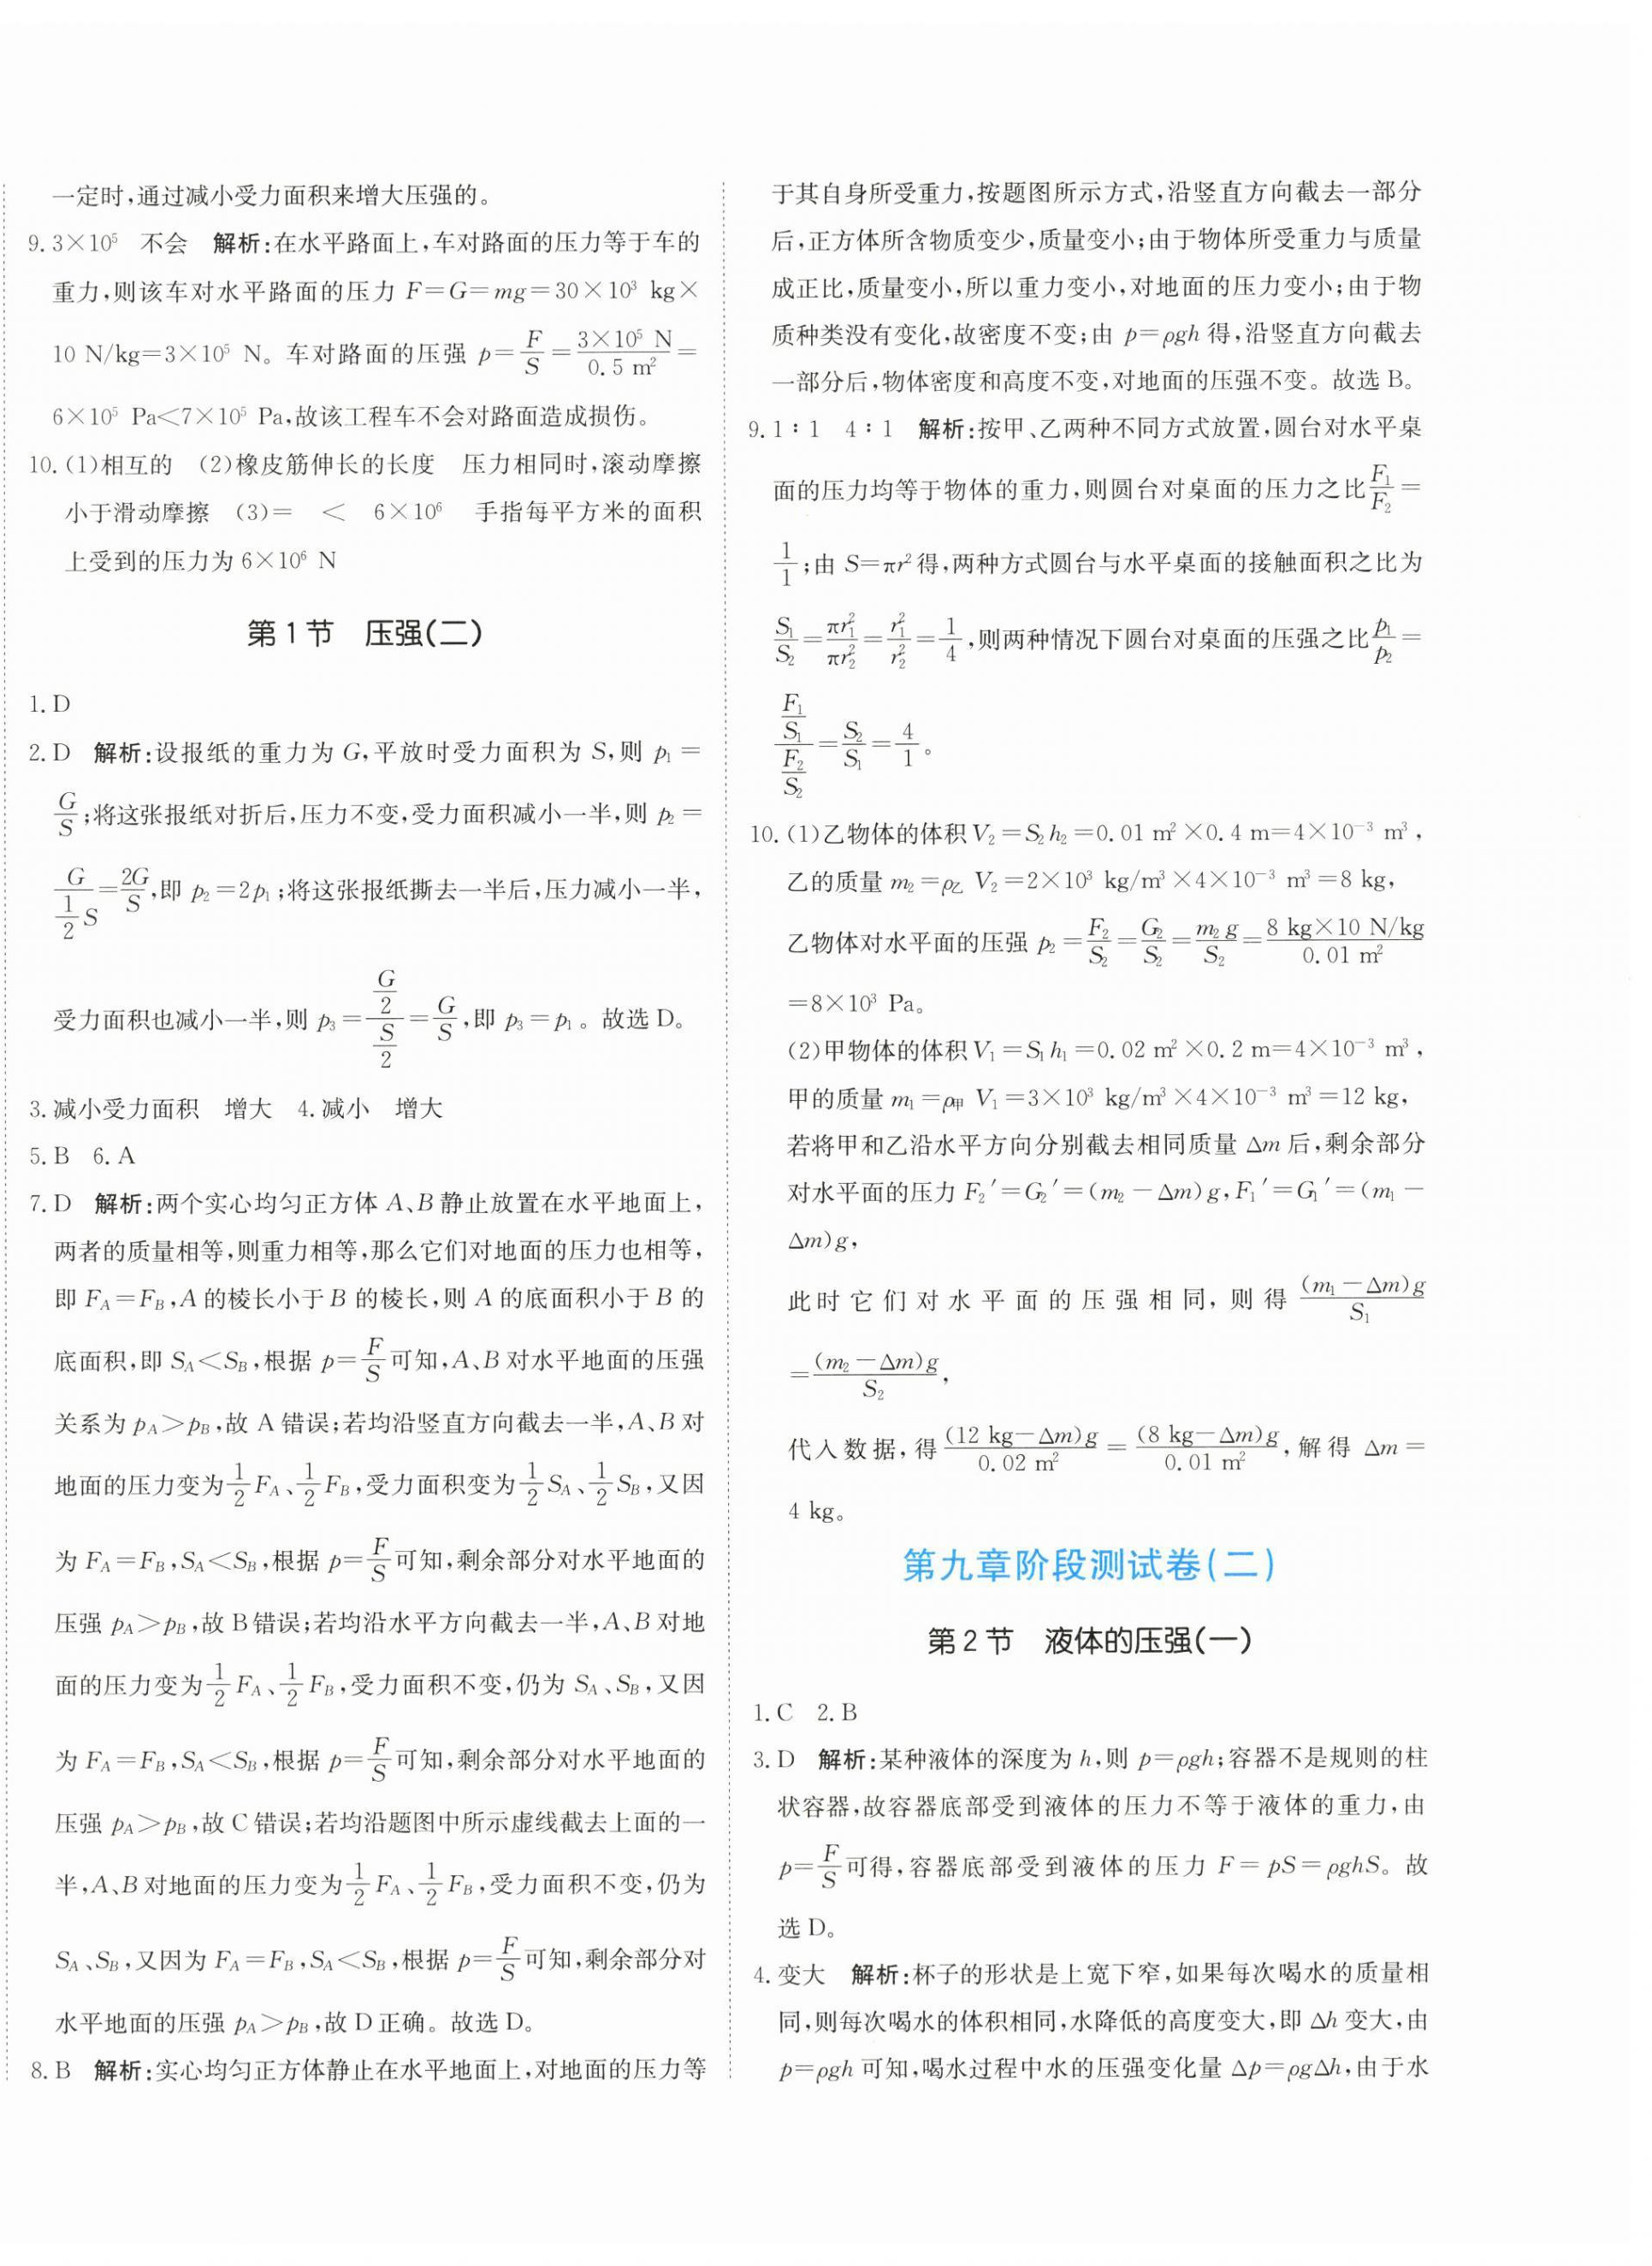 一定时,通过减小受力面积来增大压强的。
9. 3×10⁵　不会　解析:在水平路面上,车对路面的压力等于车的
重力,则该车对水平路面的压力 F=G=mg=30×10³ kg×
10 N/kg=3×10⁵ N。车对路面的压强 p=F/S=(3×10⁵ N)/(0.5 m²)=
6×10⁵ Pa<7×10⁵ Pa,故该工程车不会对路面造成损伤。
10. (1)相互的　(2)橡皮筋伸长的长度　压力相同时,滚动摩擦
小于滑动摩擦　(3)=　<　6×10⁶　手指每平方米的面积
上受到的压力为 6×10⁶ N
第1节　压强(二)
1. D
2. D　解析:设报纸的重力为 G,平放时受力面积为 S,则 p₁=
G/S;将这张报纸对折后,压力不变,受力面积减小一半,则 p₂=
G/(½S)=2G/S,即 p₂=2p₁;将这张报纸撕去一半后,压力减小一半,
受力面积也减小一半,则 p₃=(G/2)/(S/2)=G/S,即 p₃=p₁。故选 D。
3. 减小受力面积　增大　4. 减小　增大
5. B　6. A
7. D　解析:两个实心均匀正方体 A、B 静止放置在水平地面上,
两者的质量相等,则重力相等,那么它们对地面的压力也相等,
即 F_A=F_B,A 的棱长小于 B 的棱长,则 A 的底面积小于 B 的
底面积,即 S_A<S_B,根据 p=F/S可知,A、B 对水平地面的压强
关系为 p_A>p_B,故 A 错误;若均沿竖直方向截去一半,A、B 对
地面的压力变为½F_A、½F_B,受力面积变为½S_A、½S_B,又因
为 F_A=F_B,S_A<S_B,根据 p=F/S可知,剩余部分对水平地面的
压强 p_A>p_B,故 B 错误;若均沿水平方向截去一半,A、B 对地
面的压力变为½F_A、½F_B,受力面积不变,仍为 S_A、S_B,又因
为 F_A=F_B,S_A<S_B,根据 p=F/S可知,剩余部分对水平地面的
压强 p_A>p_B,故 C 错误;若均沿题图中所示虚线截去上面的一
半,A、B 对地面的压力变为½F_A、½F_B,受力面积不变,仍为
S_A、S_B,又因为 F_A=F_B,S_A<S_B,根据 p=F/S可知,剩余部分对
水平地面的压强 p_A>p_B,故 D 正确。故选 D。
8. B　解析:实心均匀正方体静止在水平地面上,对地面的压力等
于其自身所受重力,按题图所示方式,沿竖直方向截去一部分
后,正方体所含物质变少,质量变小;由于物体所受重力与质量
成正比,质量变小,所以重力变小,对地面的压力变小;由于物
质种类没有变化,故密度不变;由 p=ρgh 得,沿竖直方向截去
一部分后,物体密度和高度不变,对地面的压强不变。故选 B。
9. 1∶1　4∶1　解析:按甲、乙两种不同方式放置,圆台对水平桌
面的压力均等于物体的重力,则圆台对桌面的压力之比F₁/F₂=
1/1;由 S=πr²得,两种方式圆台与水平桌面的接触面积之比为
S₁/S₂=πr₁²/πr₂²=r₁²/r₂²=1/4,则两种情况下圆台对桌面的压强之比p₁/p₂=
(F₁/S₁)/(F₂/S₂)=S₂/S₁=4/1。
10. (1)乙物体的体积 V₂=S₂h₂=0.01 m²×0.4 m=4×10⁻³ m³,
乙的质量 m₂=ρ乙 V₂=2×10³ kg/m³×4×10⁻³ m³=8 kg,
乙物体对水平面的压强 p₂=F₂/S₂=G₂/S₂=m₂g/S₂=(8 kg×10 N/kg)/(0.01 m²)
=8×10³ Pa。
(2)甲物体的体积 V₁=S₁h₁=0.02 m²×0.2 m=4×10⁻³ m³,
甲的质量 m₁=ρ甲 V₁=3×10³ kg/m³×4×10⁻³ m³=12 kg,
若将甲和乙沿水平方向分别截去相同质量 Δm 后,剩余部分
对水平面的压力 F₂′=G₂′=(m₂-Δm)g,F₁′=G₁′=(m₁-
Δm)g,
此时它们对水平面的压强相同,则得 (m₁-Δm)g/S₁
=(m₂-Δm)g/S₂,
代入数据,得(12 kg-Δm)g/(0.02 m²)=(8 kg-Δm)g/(0.01 m²),解得 Δm=
4 kg。
第九章阶段测试卷(二)
第2节　液体的压强(一)
1. C　2. B
3. D　解析:某种液体的深度为 h,则 p=ρgh;容器不是规则的柱
状容器,故容器底部受到液体的压力不等于液体的重力,由
p=F/S可得,容器底部受到液体的压力 F=pS=ρghS。故
选 D。
4. 变大　解析:杯子的形状是上宽下窄,如果每次喝水的质量相
同,则每次喝水的体积相同,水降低的高度变大,即 Δh 变大,由
p=ρgh 可知,喝水过程中水的压强变化量 Δp=ρgΔh,由于水